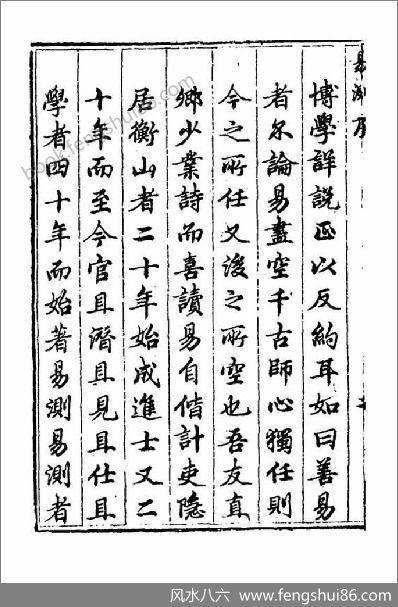 易測序
博學詳說正以反約耳如曰善易
者不論易盡空千古師心獨任則
今之所任又後之所空也吾友直
卿少業詩而喜讀易自偕計吏隱
居衡山者二十年始成進士又二
十年而至今官且潛且見且仕且
學者四十年而始著易測易測者
風水八六 - www.fengshui86.com